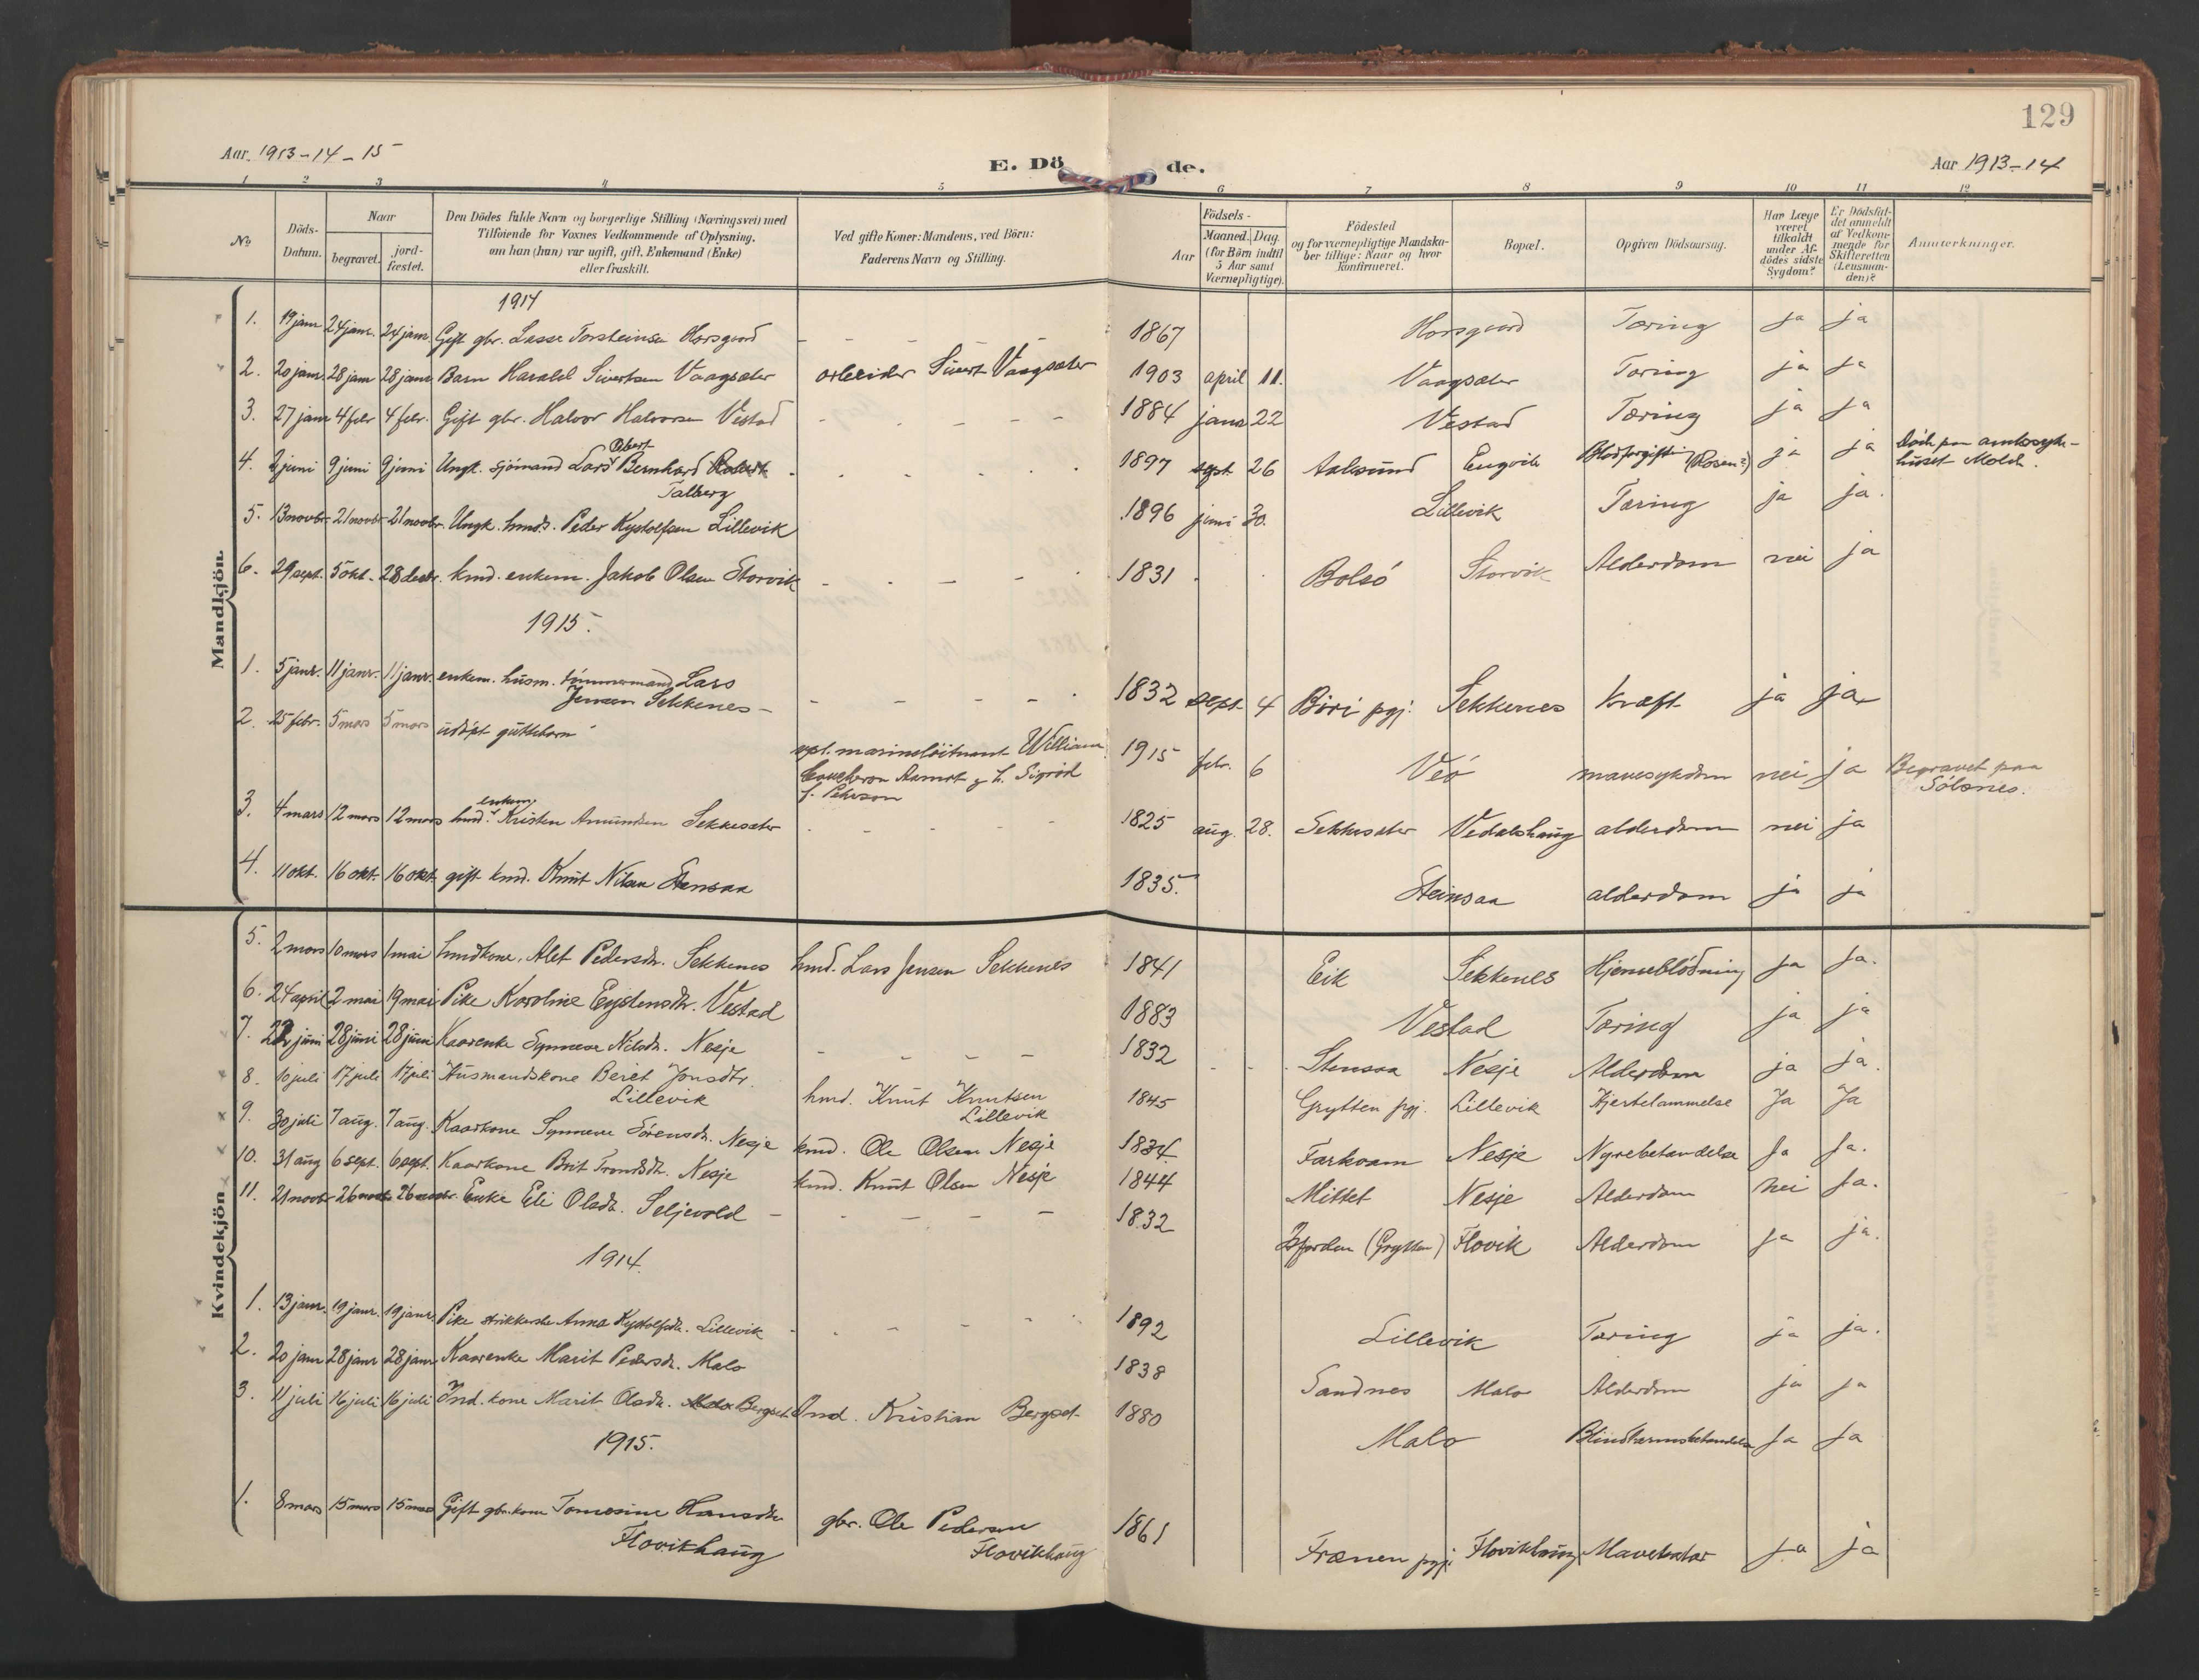 129
Aar 1913-14-15
E. Dö de.
Aar 1913-14
1 2 3 4 5 6 7 8 9 10 11 12
No
Döds-Datum.
Naar
begravet.
jord-fæstet.
Den Dödes fulde Navn og borgerlige Stilling (Næringsvei) med
Tilföiende for Voxnes Vedkommende af Oplysning,
om han (hun) var ugift, gift, Enkemand (Enke)
eller fraskilt.
Ved gifte Koner: Mandens, ved Börn:
Faderens Navn og Stilling.
Aar
Födsels-
Maaned. Dag.
(for Börn indtil
5 Aar samt
Værnepligtige).
Födested
og for værnepligtige Mandska-
ber tillige: Naar og hvor
konfirmeret.
Bopæl.
Opgiven Dödsaarsag.
Har Læge
været
tilkaldt
under Af-
dödes sidste
Sygdom?
Er Dödsfal-
det anmeldt
af Vedkom-
mende for
Skifteretten
(Lensman-
den)?
Anmærkninger.
Mandkjön.
1914
1. 19 janr 24 janr. 24 janr. Gift gbr. Lasse Torsteinsen Horsgaard - - - - 1867 Horsgaard Tæring ja ja
2. 20 janr. 28 janr 28 janr Barn Harald Sivertsen Vaagsæter arbeider Sivert Vaagsæter 1903 april 11. Vaagsæter Tæring ja ja
3. 27 janr 4 febr 4 febr. Gift gbr. Halvor Halvorsen Vestad - - - - 1884 janr 22 Vestad Tæring ja ja
4. 2 juni 9 juni 9 juni Ungk. sjömand Lars Bernhard Robert Talberg 1897 sept. 26 Aalsund Engvik Blodforgiftning (Rosen?) ja ja Död paa amtssyke-
huset Molde.
5. 13 novbr. 21 novbr 21 novbr. Ungk. hmds. Peder Kystolfsen Lillevik 1896 juni 30. Lillevik Tæring ja ja.
6. 29 sept. 5 okt. 28 decbr. kmd. enkem. Jakob Olsen Storvik - - - - 1831 Bolsö Storvik Alderdom nei ja
1915.
1. 5 janr. 11 janr. 11 janr. enkem. husm. tömmermand Lars
Jensen Sekkenes - - - - - 1832 sept. 4 Biri pgj. Sekkenes kræft ja ja
2. 25 febr. 5 mars 5 mars udöpt guttebarn
marinelöitnant William
Sigrid
f. Peterson 1915 febr. 6 Veö mavesykdom nei ja Begravet paa
Sölsnes.
3. 4 mars 12 mars 12 mars hmd. enkem Kristen Amundsen Sekkesæter - - - - 1825 aug. 28. Sekkesæter Vedalshaug alderdom nei ja
4. 11 okt. 16 okt. 16 okt. gift kmd. Knut Nilsen Stensaa 1835. Steinsaa alderdom ja ja
Kvindekjön
5. 2 mars 10 mars 1 mai hmdkone. Alet Pedersdtr. Sekkenes hmd. Lars Jensen Sekkenes 1841 Eik Sekkenes Hjerneblödning ja ja.
6. 24 april 2 mai 19 mai Pike Karoline Eystensdtr. Vestad 1883 Vestad Tæring ja ja
7. 22 juni 28 juni 28 juni Kaarenke Synneve Nilsdtr. Nesje - - - - 1832 Stensaa Nesje Alderdom ja ja.
8. 10 juli 17 juli 17 juli Husmandskone Beret Jonsdtr.
Lillevik hmd. Knut Knutsen
Lillevik 1845 Grytten pgj. Lillevik Hjertelammelse Ja Ja
9. 30 juli 7 aug. 7 aug. Kaarkone Synneve Sörensdtr. Nesje kmd. Ole Olsen Nesje 1834 Farkvam Nesje Nyrebetændelse Ja Ja.
10. 31 aug 6 sept. 6 sept. Kaarkone Brit Trondsdtr. Nesje kmd. Knut Olsen Nesje 1844 Mittet Nesje Alderdom nei Ja.
11. 21 novbr 26 novbr 26 novbr. Enke Eli Olsdtr. Seljevold - - - - - 1832 Isfjorden (Grytten) Flovik Alderdom ja ja.
1914.
1. 13 janr. 19 janr. 19 janr. Pike strikkerske Anna Kystolfsdtr. Lillevik - - - - 1892 Lillevik Tæring ja ja.
2. 20 janr 28 janr 28 janr Kaarenke Marit Pedersdtr. Malo 1838 Sandnes Malo Alderdom ja ja
3. 11 juli 16 juli 16 juli Ind. kone Marit Olsdtr. Malo Bergset Ind. Kristian Bergset 1880 Malo Blindtarmsbetændelse Ja Ja
1915.
1. 8 mars 15 mars 15 mars Gift gbr.kone Tomesine Hansdtr
Flovikhaug gbr. Ole Pedersen
Flovikhaug 1861 Frænen pgj. Flovikhaug Mavekatar ja ja